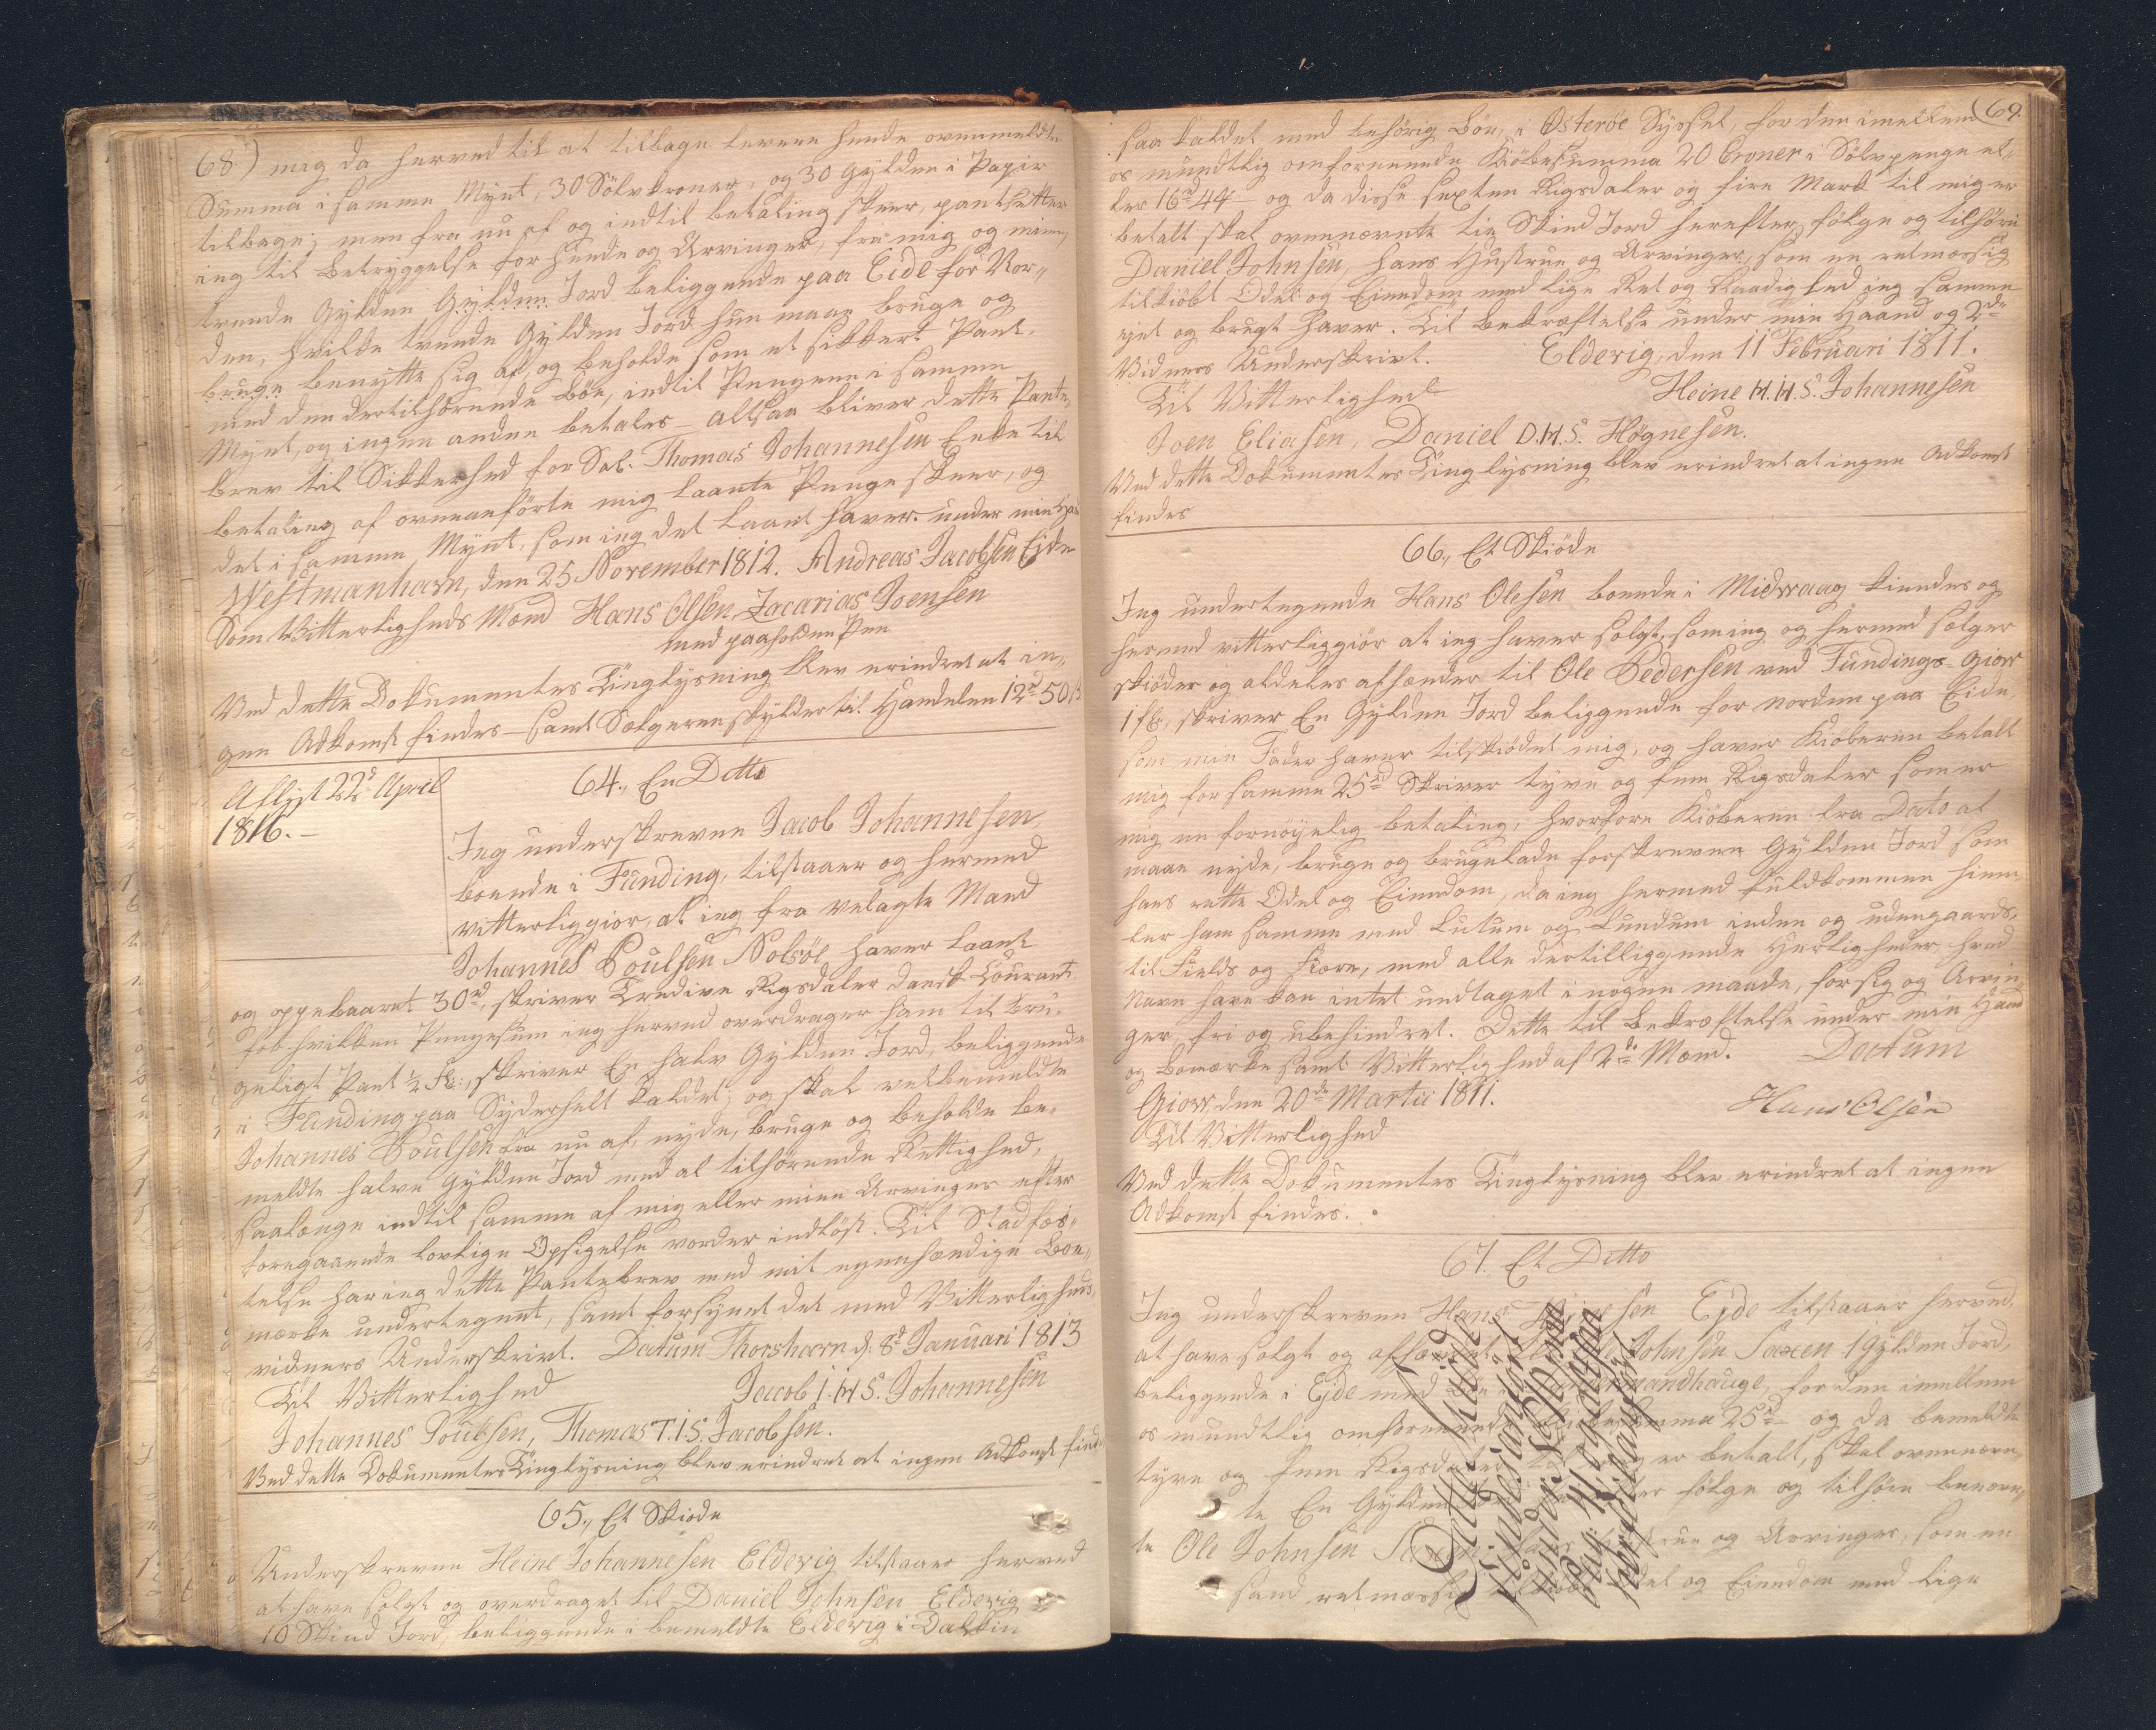 68.) mig da herved til at tilbage levere hende ovenmeldte
Summa i samme Mynt, 30 Sölvkroner, og 30 Gylden i Papir
tilbage; men fra nu af og indtil betaling skeer, pantsetter
ieg til Betryggelse for hende og Arvinger, fra mig og mine,
trende Gylden Gylden Jord beliggende paa Eide for Nor-
den, hvilke trende Gylden Jord hun maae bruge og
bruge benytte sig af, og beholde som et sikkert Pant,
med den dertilhörende Böe, indtil Pengene i samme
Mynt, og ingen anden betales – altsaa bliver dette Pante,
brev til Sikkerhed for Sal. Thomas Johannesen Enke til
betaling af ovenanförte mig laante Penge skeer, og
det i samme Mynt, som ieg det laant haver. under min Haand
Westmanhavn, den 25 November 1812. Andreas Jacobsen Ejde
Som Vitterligheds Mænd Hans Olsen, Zacarias Joensen
med paaholden Pen
Ved dette Dokumentes Tinglysning blev erindret at in-
gen Adkomst findes – samt Sælgeren skylder til Handelen 12rd 50 s
Aflyst 22d April
1816. –
64., En Ditto
Jeg underskrevne Jacob Johannesen
boende i Funding, tilstaaer og hermed
vitterliggiör, at ieg fra velagte Mand
Johannes Poulsen Nolsöe haver laant
og oppebaaret 30rd, skriver Tredive Rigsdaler dansk Courant
for hvilken Pengesum ieg herved overdrager ham til bru-
geligt Pant ½ fl:, skriver En halv Gylden Jord, beliggende
i Funding paa Syderhelt kaldet; og skal velbemeldte
Johannes Poulsen fra nu af, nyde, bruge og beholde be-
meldte halve Gylden Jord med al tilhörende Rettighed,
saalænge indtil samme af mig eller mine Arvinger efter
foregaaende lovlige Opsigelse vorder indlöst. Til Stadfæs-
telse har ieg dette Pantebrev med mit egenhændige Boe-
mærke undertegnet, samt forsynet det med Vitterligheds,
vidners Underskrivt. Datum Thorshavn d. 8d Januari 1813
Til Vitterlighed Jacob I. H S. Johannesen
Johannes Poulsen, Thomas T. I. S. Jacobsen.
Ved dette Dokumentes Tinglysning blev erindret at ingen Adkomst findes
65., Et Skiöde
Underskrevne Heine Johannesen Eldevig tilstaaer herved
at have solgt og overdraget til Daniel Johnsen Eldevig
10 Skind Jord, beliggende i bemeldte Eldevig i Dalkin
69.
saa kaldet med behörig Böe, i Osteröe Syssel, for den imellem
os mundtlig omforenende Kiöbesumma 20 Croner i Sölvpenge el-
ler 16rd 4 – og da disse sexten Rigsdaler og fire Mark til mig er
betalt skal ovennævnte tie Skind Jord herefter fölge og tilhöre
Daniel Johnsen, hans Hustrue og Arvinger, som en retmæssig
tilkiöbt Odel og Eiendom med lige Ret og Raadighed ieg samme
ejet og brugt haver. Til Bekræftelse under min Haand og 2de
Vidners Underskrivt. Eldevig, den 11 Februari 1811.
Til Vitterlighed Heine H. H. S. Johannesen
Joen Eliasen, Daniel D. H. S. Høgnesen.
Ved dette Dokumentes Tinglysning blev erindret at ingen Adkomst
findes
66., Et Skiöde
Jeg undertegnede Hans Olesen boende i Midvaag kiendes og
hermed vitterliggiör at ieg haver solgt, som ieg og hermed sælger
skiöder og aldeles afhænder til Ole Pedersen ved Fundings-Giow
1 fl:, skriver En Gylden Jord beliggende for norden paa Eide,
som min Fader haver tilskiödet mig, og haver Kiöberen betalt
mig for samme 25rd Skriver tyve og fem Rigsdaler som er
mig en fornöyelig betaling, hvorfore Kiöberen fra Dato at
maae nyde, bruge og brugelade forskrevne Gylden Jord som
hans rette Odel og Eiendom, da ieg hermed fuldkommen hiem-
ler ham samme med Lutum og Lundum inden og udengaards,
til Fields og Fiære, med alle dertilliggende Herligheder, hvad
Navn have kan intet undtaget i nogen maade, for sig og Arvin-
ger, fri og ubehindret. Dette til Bekræftelse under min Haand
og Bomærke samt Vitterlighed af 2de Mænd. Dactum
Giow, den 20de Martii 1811. Hans Olsen
Til Vitterlighed
Ved dette Dokumentes Tinglysning blev erindret at ingen
Adkomst findes.
67. Et Ditto
Jeg underskrevne Hans Ejde tilstaaer herved,
at have solgt og afhændet Johnsen Saxen 1 Gylden Jord,
beliggende i Ejde med for den imellem
os mundtlig omforenende 25rd og da bemeldte
tyve og fem Rigsdaler er betalt, skal ovennævn-
te En Gylden fölge og tilhöre benævn-
te Ole Johnsen Saxen og Arvinger, som en
sand retmæssig Odel og Eiendom med lige